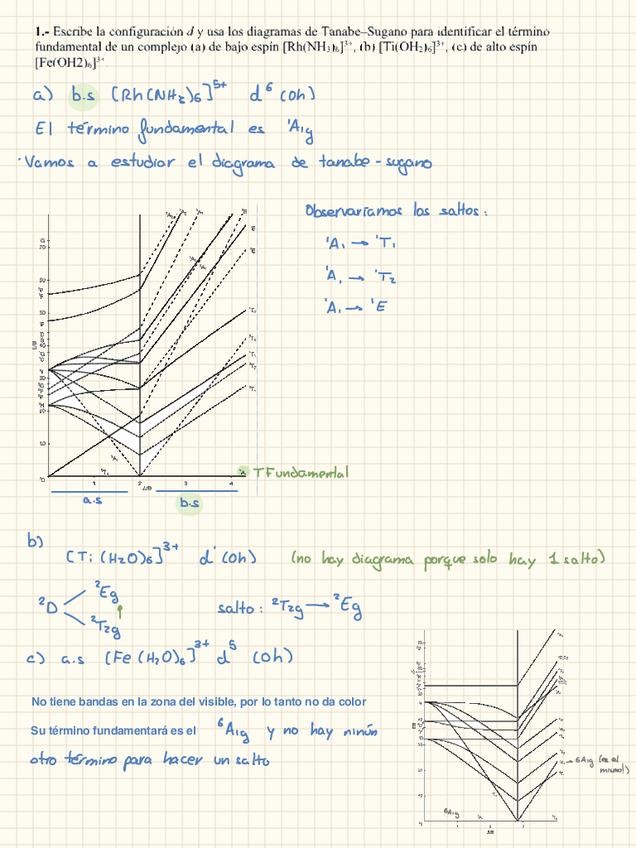 1.- Escribe la configuración d y usa los diagramas de Tanabe–Sugano para identificar el término
fundamental de un complejo (a) de bajo espín [Rh(NH₃)₆]³⁺, (b) [Ti(OH₂)₆]³⁺, (c) de alto espín
[Fe(OH2)₆]³⁺
a) b.s [Rh(NH₃)₆]⁵⁺ d⁶ (Oh)
El término fundamental es ¹A₁g
·Vamos a estudiar el diagrama de tanabe-sugano
Observaríamos los saltos:
¹A₁ → ¹T₁
¹A₁ → ¹T₂
¹A₁ → ¹E
T Fundamental
a.s
b.s
b)
[Ti(H₂O)₆]³⁺ d¹ (Oh) (no hay diagrama porque solo hay 1 salto)
²D
²Eg
²T₂g
salto: ²T₂g → ²Eg
c) a.s [Fe(H₂O)₆]³⁺ d⁵ (Oh)
No tiene bandas en la zona del visible, por lo tanto no da color
Su término fundamentará es el ⁶A₁g y no hay ninún
otro término para hacer un salto
6A1g (es el
mismo!)
6A1g